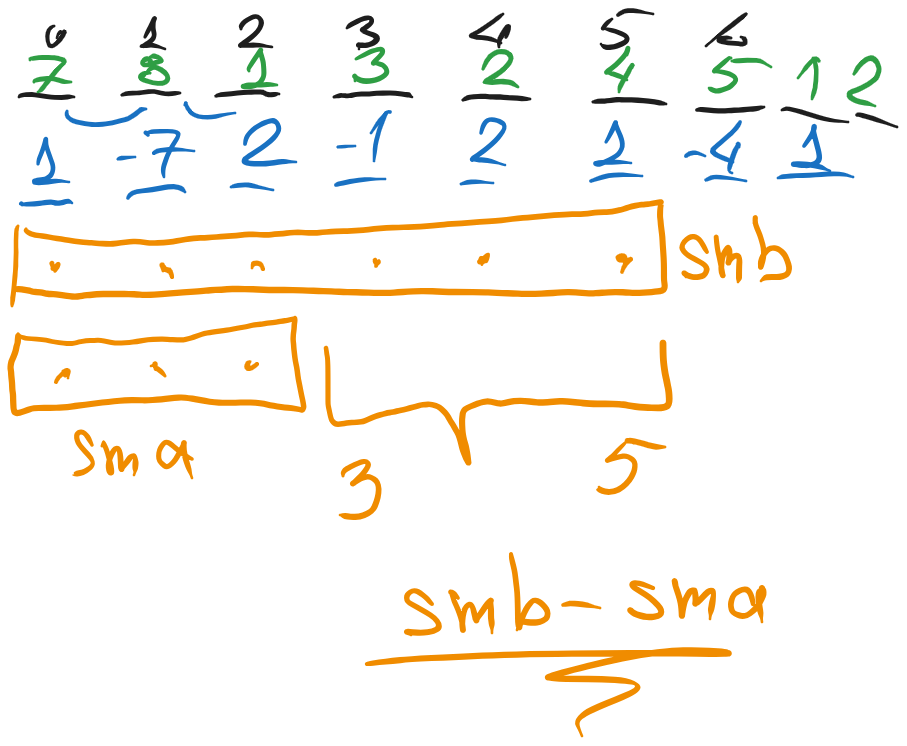 0 1 2 3 4 5 6
7 8 1 3 2 4 5 1 2
1 -7 2 -1 2 1 -4 1
smb
sma
3 5
smb - sma